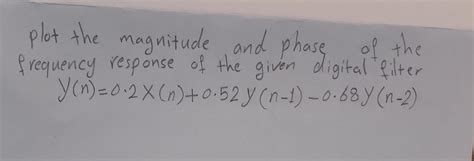 plot the magnitude and phase of the
frequency response of the given digital filter
y(n)=0.2X(n)+0.52y(n-1)-0.68y(n-2)